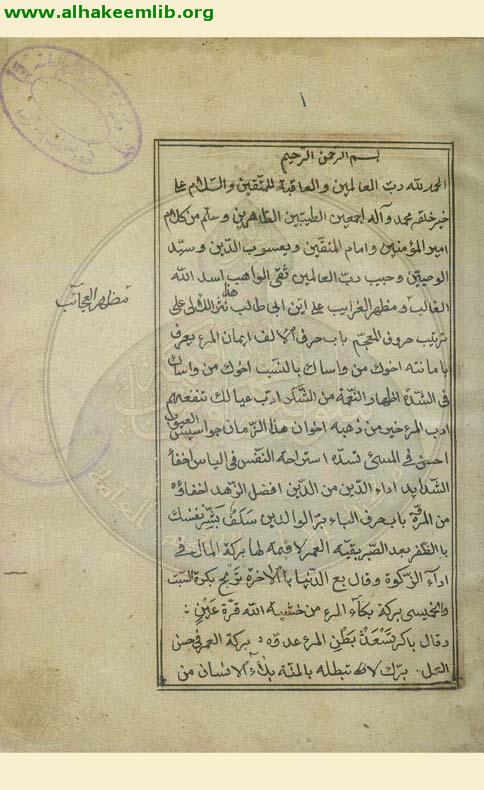 www.alhakeemlib.org
بسم الرحمن الرحیم
الحمد لله رب العالمین و العاقبة للمتقین والسلام علی
خیر خلقه محمد و آله اجمعین الطیبین الطاهرین و سلم من کلام
امیر المؤمنین و امام المتقین و یعسوب الدین و سید
الوصیین و حبیب رب العالمین الواهب اسد الله
الغالب و مظهر الغرایب علی ابن ابی طالب هذا نثر اللالی علی
مظهر العجائب
ترتیب حروف المعجم باب حرف الالف ایمان المرء یعرف
بامانته اخوک من واساک بالنشب اخوک من واساک
فی الشدة اظهار النعمة من الشکر ادب عیالک تنفعهم
ادب المرء خیر من ذهبه اخوان هذا الزمان جواسیس العیوب
احسن فی المسئ تسده استراحة النفس فی الیاس اخفآ
الشداید اداء الدین من الدین افضل الزهد اخفاؤه
من المروّة باب حرف الباء برّ الوالدین سلف بَشِّر نفسک
بالظفر بعد الصبر بقیه العمر لا قیمه لها برکة المال فی
ادآء الزکوة و قال بع الدنیا بالآخرة تربح بکرة السبت
والخمیس برکة بکآء المرء من خشیة الله قرّة عَیْنٍ
و قال باکر تَسْعَدْ بَطْن المرء عدوّه برکة العمر فی حسن
العمل برّک لا تبطله بالمنّة بلآء الانسان من